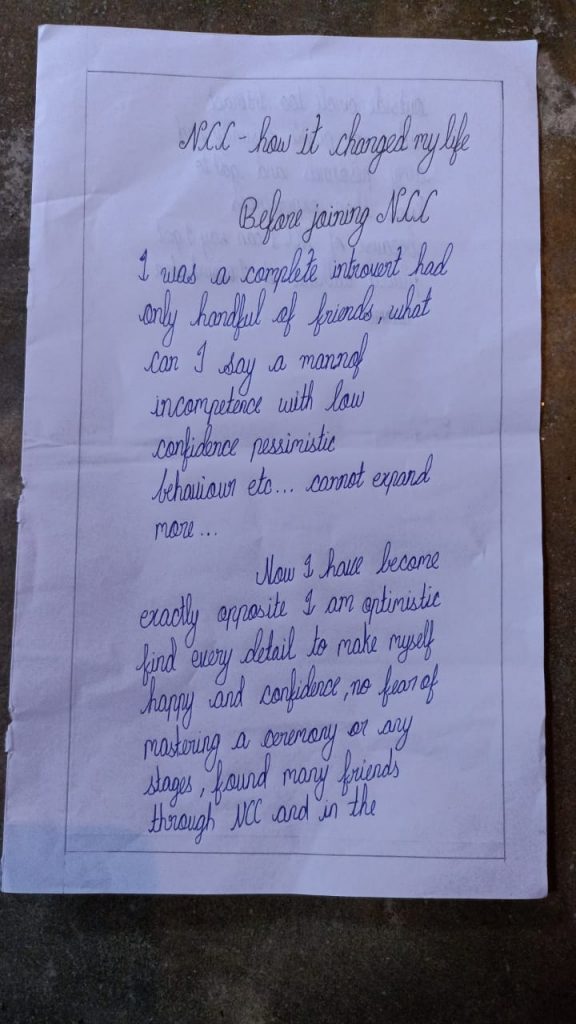 NCC - how it changed my life
Before joining NCC
I was a complete introvert had
only handful of friends, what
can I say a mannof
incompetence with low
confidence pessimistic
behaviour etc... cannot expand
more...
Now I have become
exactly opposite I am optimistic
find every detail to make myself
happy and confidence, no fear of
mastering a ceremony or any
stages, found many friends
through NCC and in the